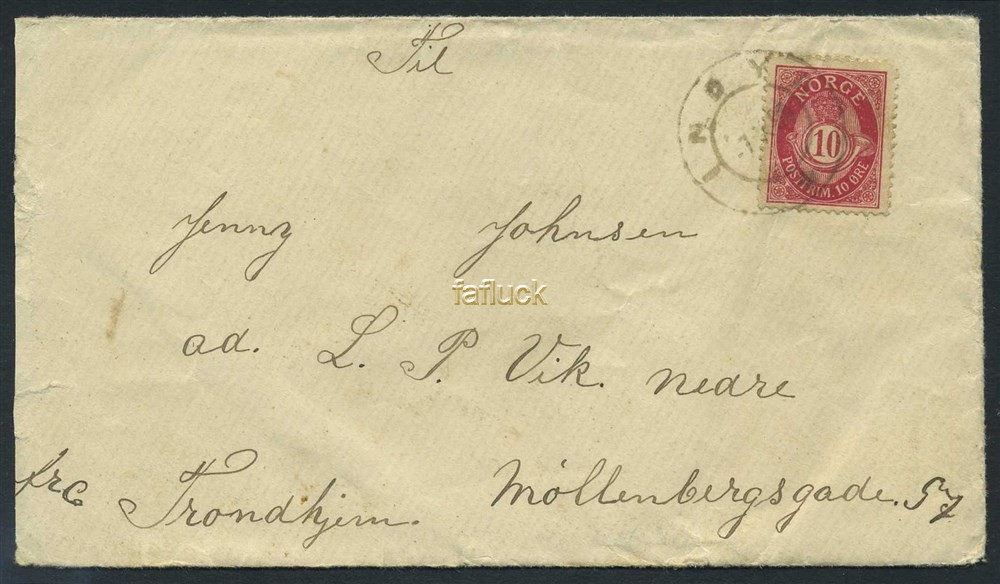 Til
INDY
NORGE
10
POSTFRIM. 10 ØRE
Jenny Johnsen
fafluck
ad. L. P. Vik. nedre
frc Trondhjem. Möllenbergsgade. 57